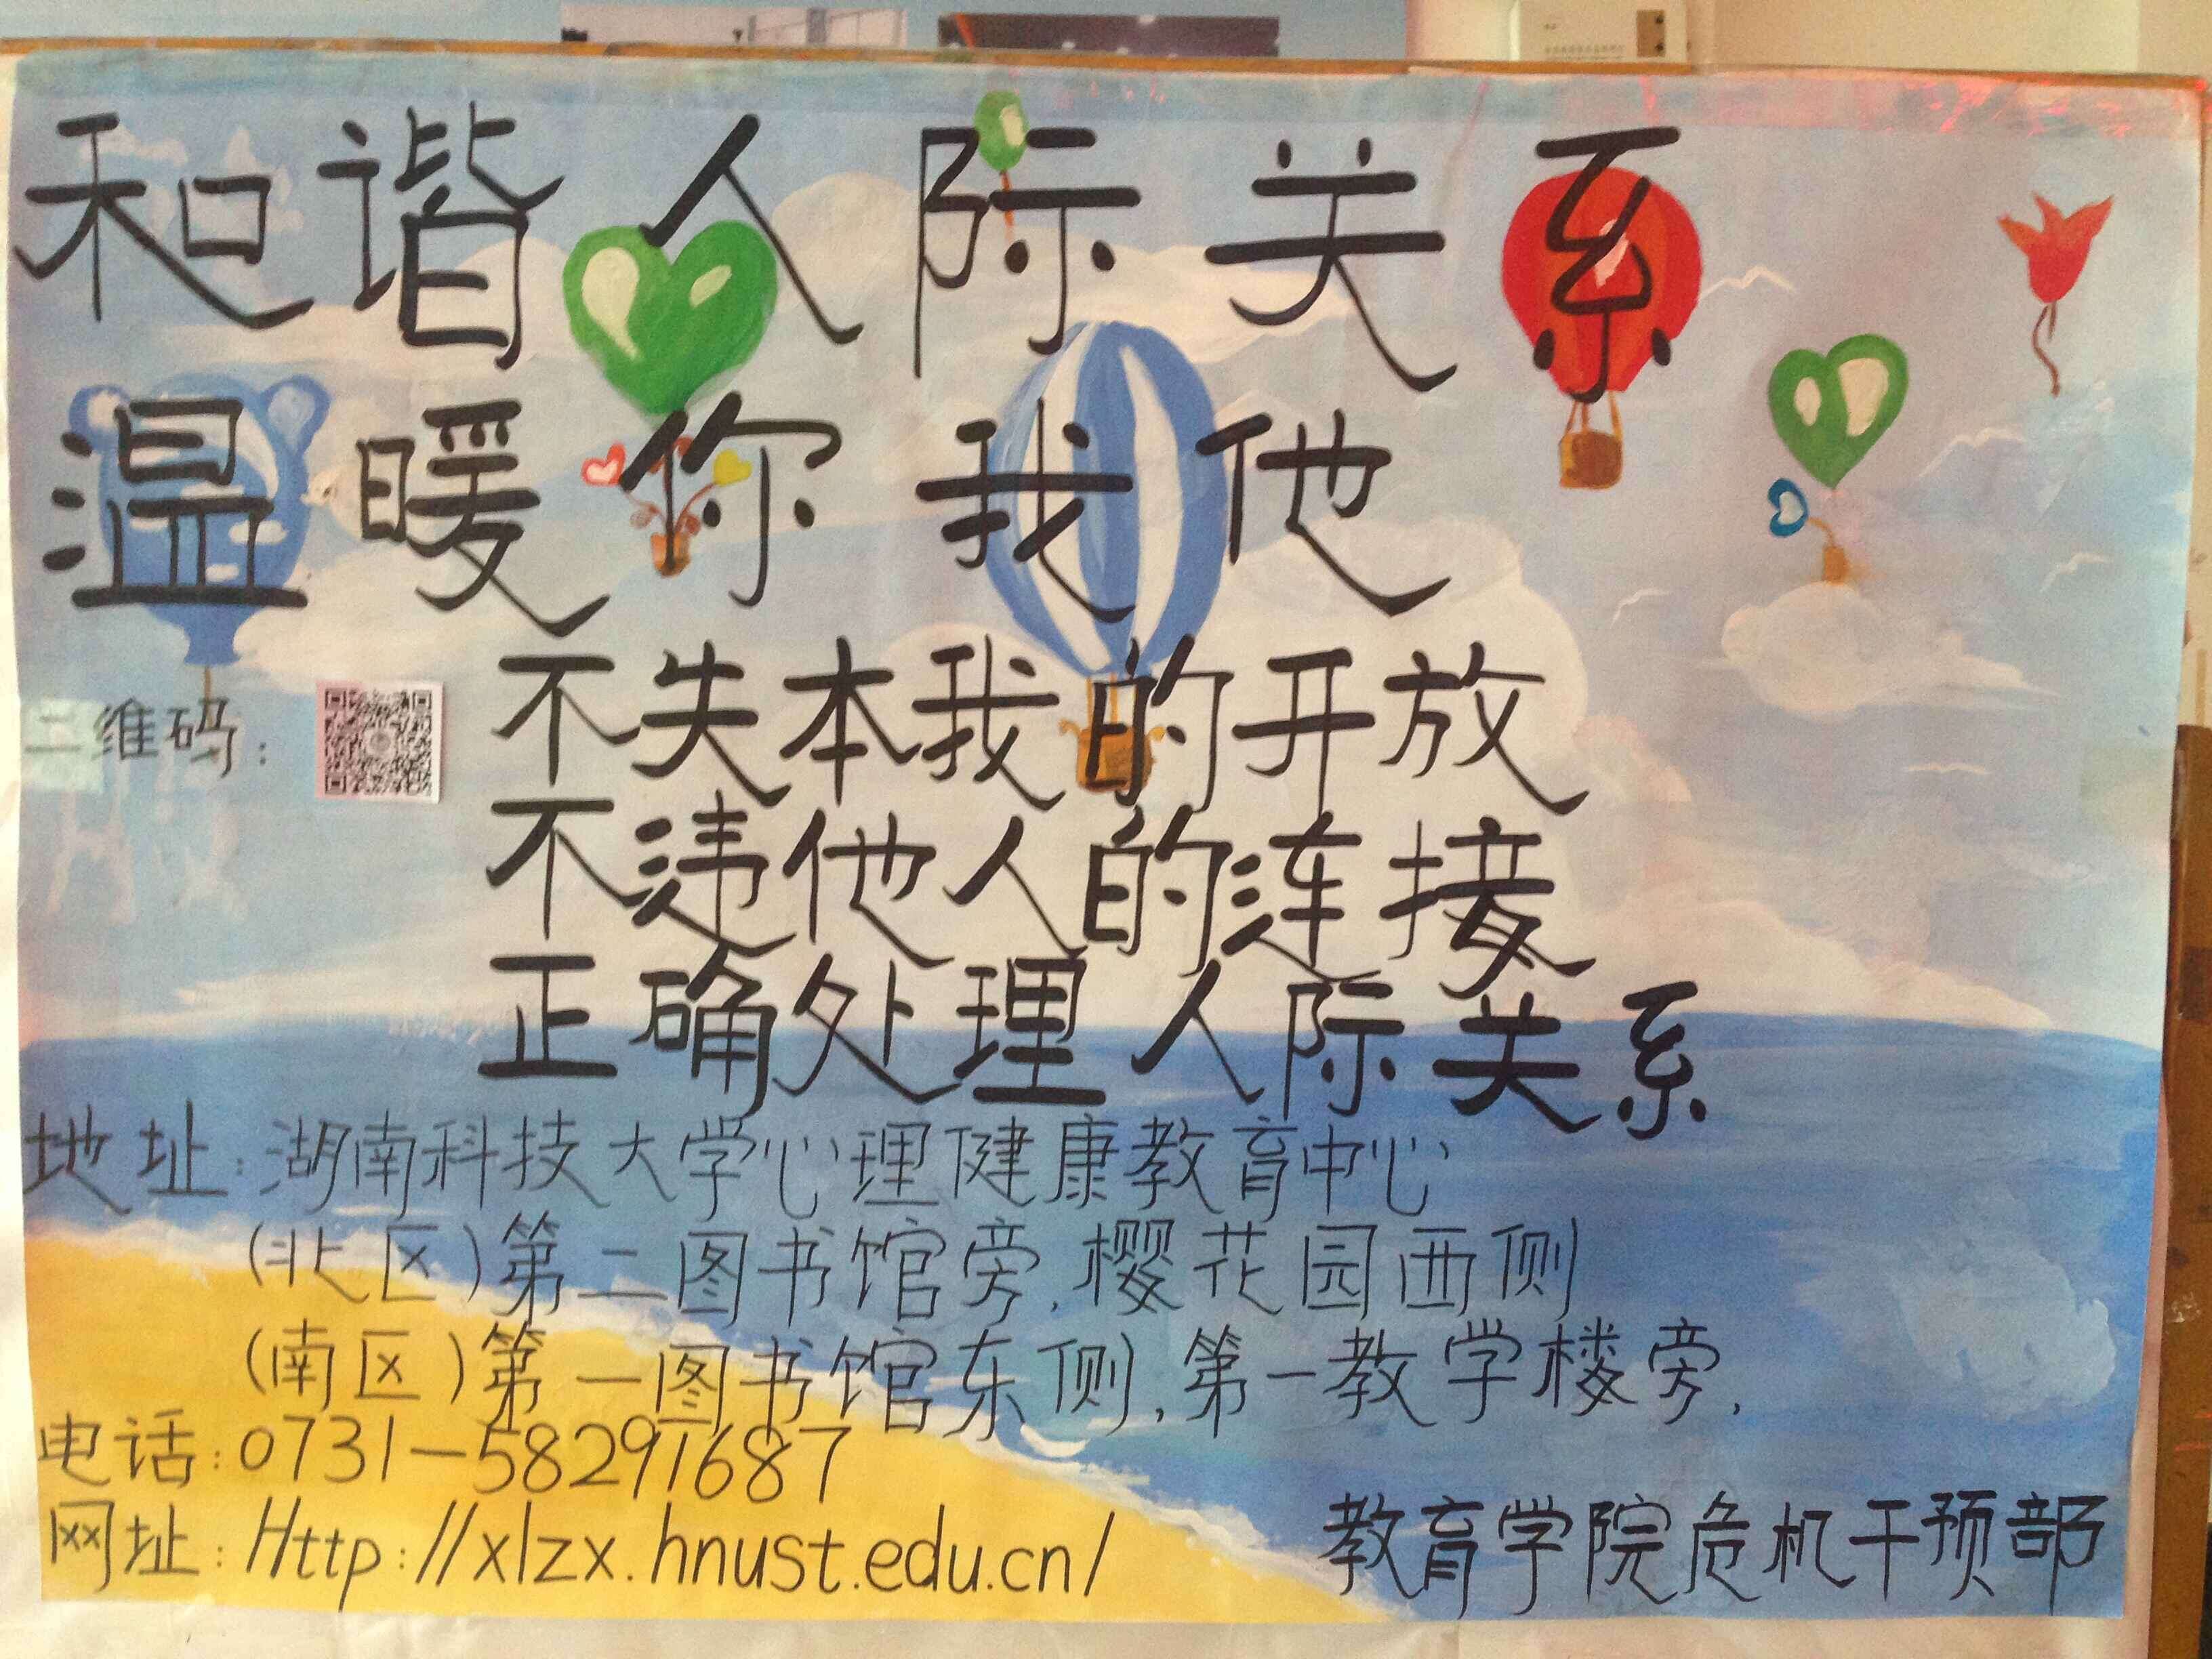 和谐人际关系
温暖你我他
二维码：
不失本我的开放
不违他人的连接
正确处理人际关系
地址：湖南科技大学心理健康教育中心
（北区）第二图书馆旁，樱花园西侧
（南区）第一图书馆东侧，第一教学楼旁，
电话：0731-58291687
网址：Http://xlzx.hnust.edu.cn/
教育学院危机干预部